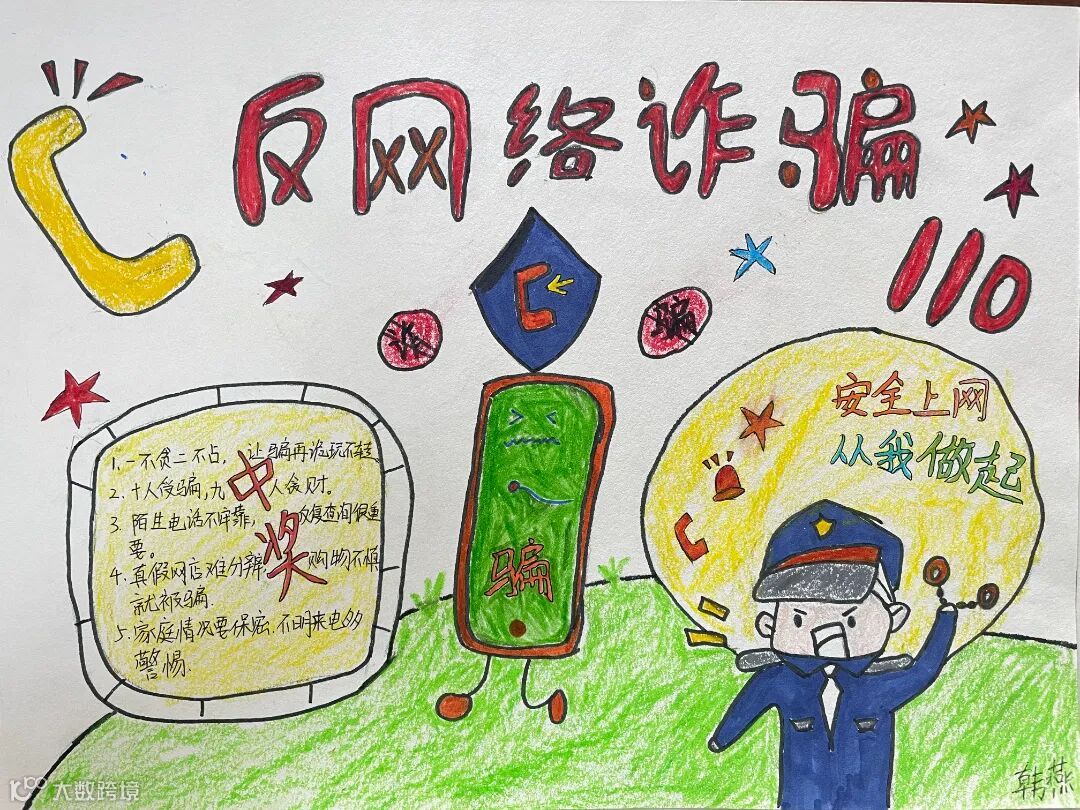 反网络诈骗
110
诈
骗
安全上网
从我做起
1. 一不贪二不占，让骗再诡玩不转
2. 十人受骗，九人贪财。
3. 陌生电话不牢靠，反复查询很重
要。
4. 真假网店难分辨，购物不慎
就被骗.
5. 家庭情况要保密.不明来电多
警惕.
中奖
骗
韩燕
大数跨境